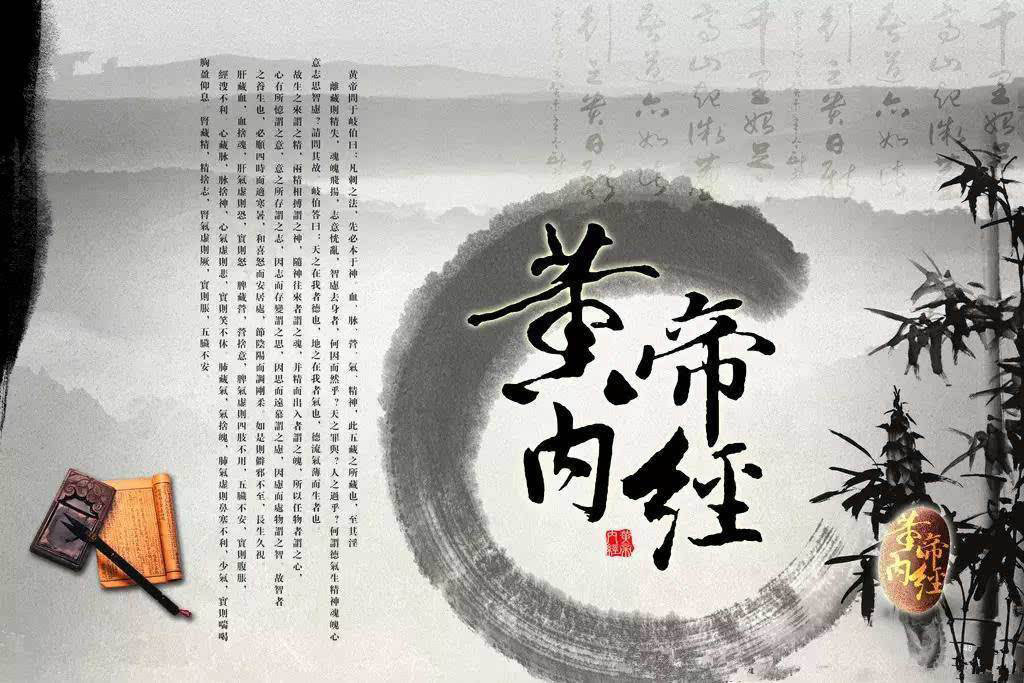 黃帝
內經
黃帝內經
黃帝問于岐伯曰:凡刺之法,先必本于神 血、脉、營、氣、精神,此五藏之所藏也,至其淫
離藏則精失,魂魄飛揚,志意恍亂,智慮去身者,何因而然乎?天之罪與?人之過乎?何謂德氣生精神魂魄心
意志思智慮?請問其故 岐伯答曰:天之在我者德也,地之在我者氣也,德流氣薄而生者也
故生之來謂之精,兩精相搏謂之神,隨神往來者謂之魂,并精而出入者謂之魄,所以任物者謂之心,
心有所憶謂之意,意之所存謂之志,因志而存變謂之思,因思而遠慕謂之慮,因慮而處物謂之智 故智者
之養生也,必順四時而適寒暑,和喜怒而安居處,節陰陽而調剛柔 如是則僻邪不至,長生久視
肝藏血,血捨魂,肝氣虛則恐,實則怒 脾藏營,營捨意,脾氣虛則四肢不用,五臟不安,實則腹脹,
經溲不利 心藏脉,脉捨神,心氣虛則悲,實則笑不休 肺藏氣,氣捨魄,肺氣虛則鼻塞不利,少氣,實則喘喝
胸盈仰息 腎藏精,精捨志,腎氣虛則厥,實則脹,五臟不安
黃帝
內經